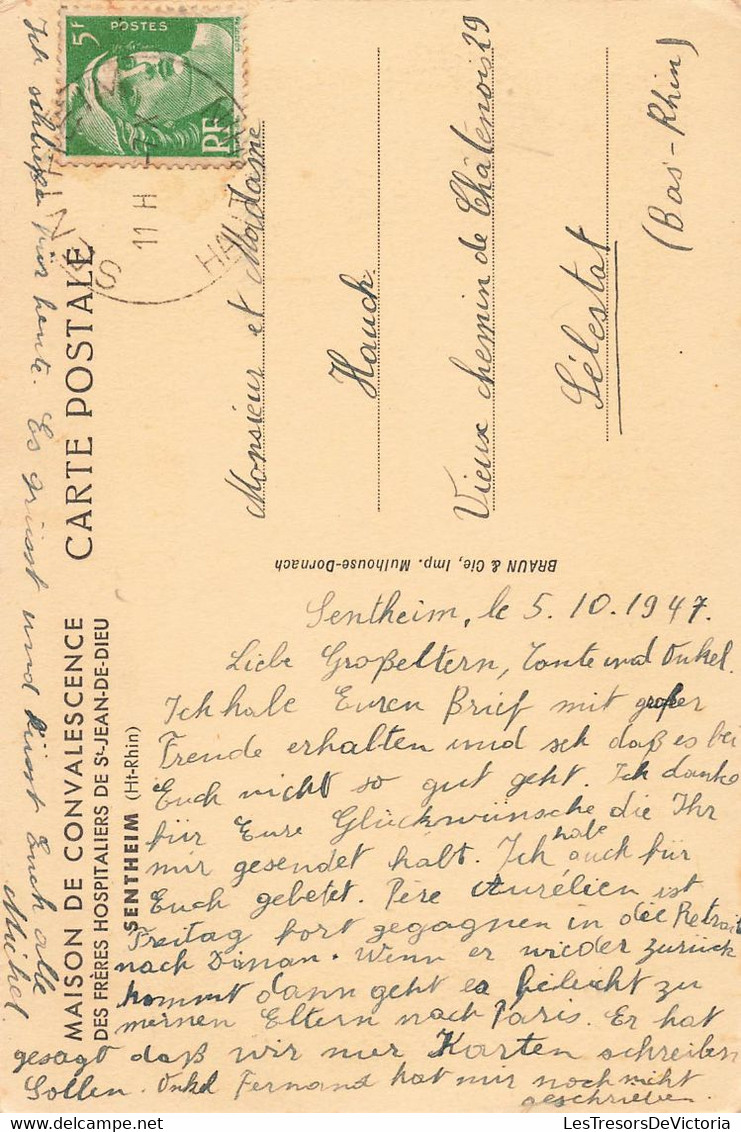 POSTES
5F
RF
SENTHEIM
11 H
HAUT
CARTE POSTALE
MAISON DE CONVALESCENCE
DES FRÈRES HOSPITALIERS DE St-JEAN-DE-DIEU
SENTHEIM (Ht-Rhin)
BRAUN & Cie, Imp. Mulhouse-Dornach
Monsieur et Madame
Hauck
Vieux chemin de Châtenois 29
Sélestat
(Bas-Rhin)
Sentheim, le 5.10.1947.
Liebe Großeltern, Tante und Onkel.
Ich habe Euren Brief mit großer
Freude erhalten und seh daß es bei
Euch nicht so gut geht. Ich danke
für Eure Glückwünsche die Ihr
mir gesendet habt. Ich habe auch für
Euch gebetet. Père Aurélien ist
Freitag fort gegagnen in die Retrait
nach Dinan. Wenn er wieder zurück
kommt dann geht er fileicht zu
meinen Eltern nach Paris. Er hat
gesagt daß wir nur Karten schreiben
Sollen. Onkel Fernand hat mir noch nicht
geschrieben.
Ich schließe für heute. Es grüsst und küsst Euch alle
Michel.
LesTresorsDeVictoria